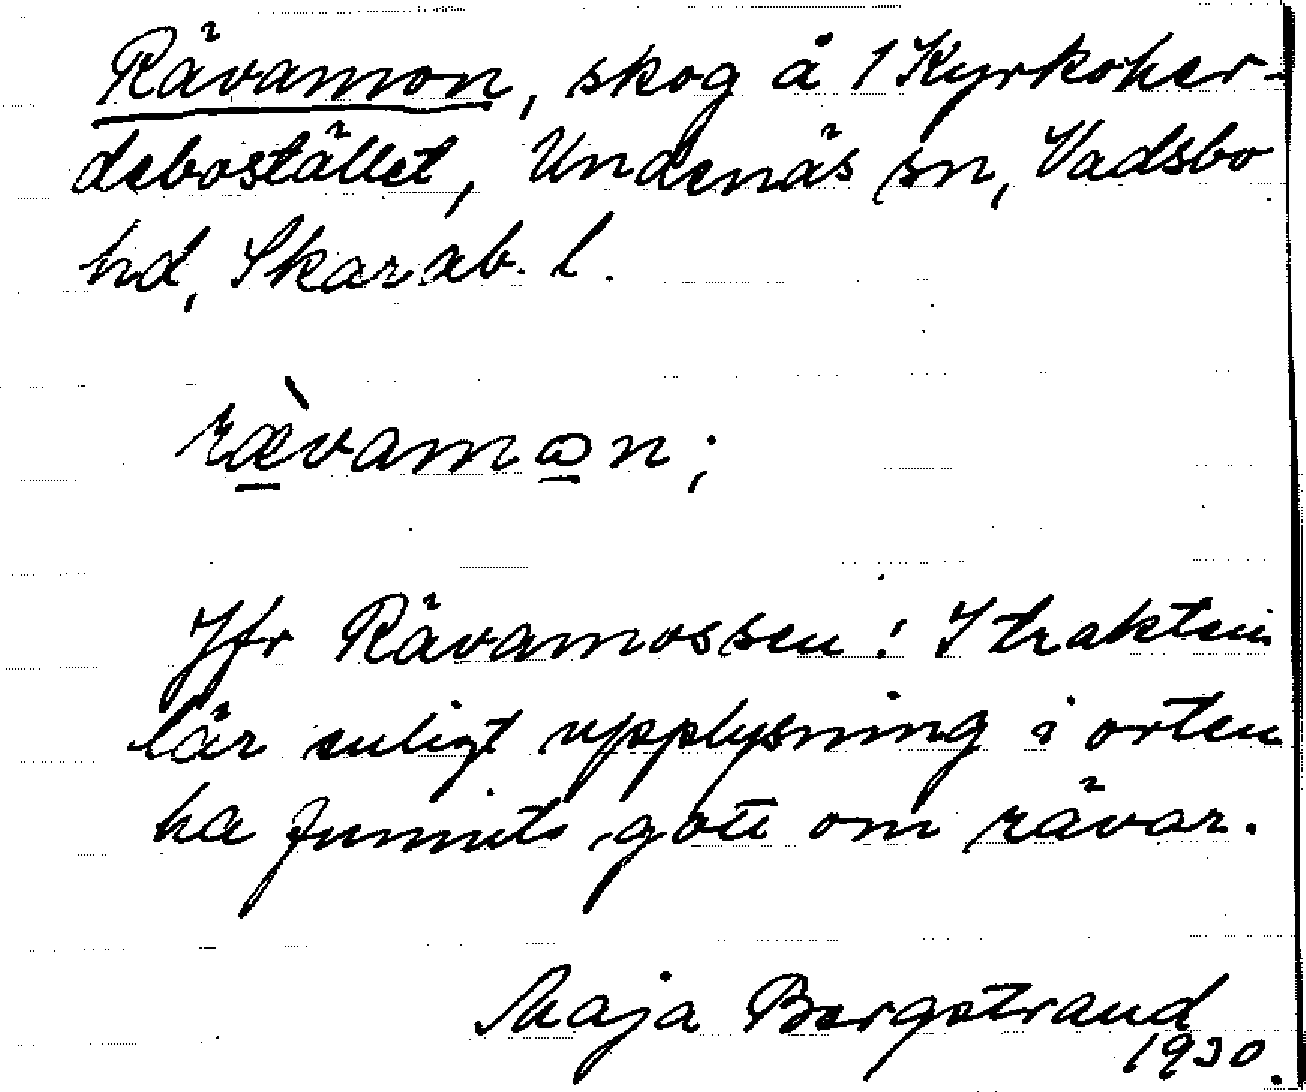 Rävamon, skog å 1 Kyrkoher-
debostället, Undenäs sn, Vadsbo
hd, Skarab. l.
ræ̀vamɷn;
Jfr Rävamossen! I trakten
lär enligt upplysning i orten
ha funnits gott om rävar.
Maja Bergstrand
1930.